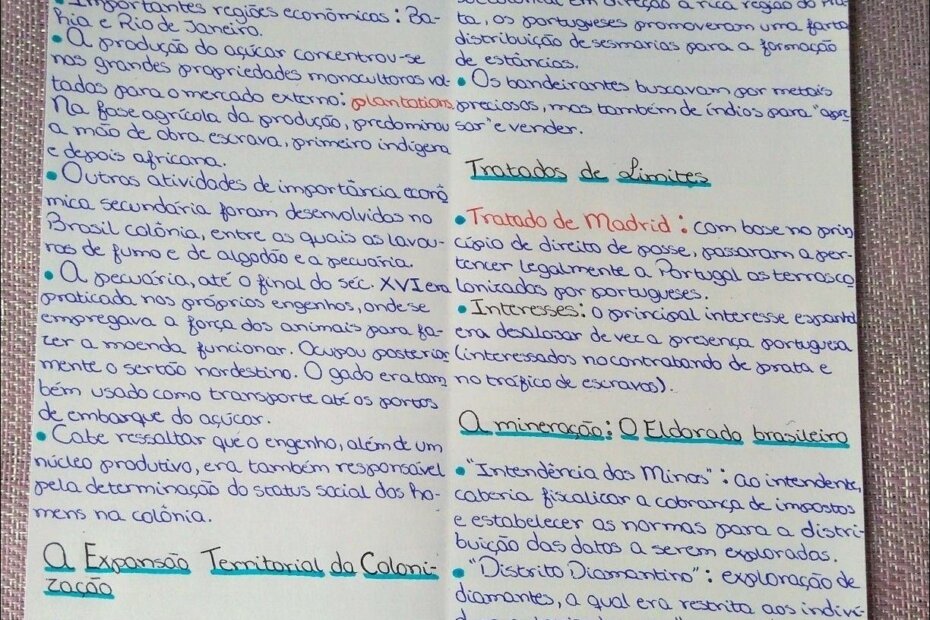 Importantes regiões econômicas: Ba-
hia e Rio de Janeiro.
A produção do açúcar concentrou-se
nas grandes propriedades monocultoras vol-
tadas para o mercado externo: plantations
Na fase agrícola da produção, predominou
a mão de obra escrava, primeiro indígena
e depois africana.
Outras atividades de importância econô
mica secundária foram desenvolvidas no
Brasil colônia, entre as quais as lavou-
ras de fumo e de algodão e a pecuária.
A pecuária, até o final do séc. XVI era
praticada nos próprios engenhos, onde se
empregava a força dos animais para fa-
zer a moenda funcionar. Ocupou posterior
mente o sertão nordestino. O gado era tam
bém usado como transporte até os portos
de embarque do açúcar.
Cabe ressaltar que o engenho, além de um
núcleo produtivo, era também responsável
pela determinação do status social dos ho-
mens na colônia.
A Expansão Territorial da Coloni-
zação
em direção a rica região do
ta, os portugueses promoveram uma farta
distribuição de sesmarias para a formação
de estâncias.
Os bandeirantes buscavam por metais
preciosos, mas também de índios para "apre
sar" e vender.
Tratados de Limites
Tratado de Madrid: com base no prin
cípio de direito de posse, passaram a per-
tencer legalmente a Portugal as terras co
lonizadas por portugueses.
Interesses: o principal interesse espanhol
era desalojar de vez a presença portuguesa
(interessados no contrabando de prata e
no tráfico de escravos).
A mineração: O Eldorado brasileiro
"Intendência das Minas": ao intendente,
caberia fiscalizar a cobrança de impostos
e estabelecer as normas para a distri-
buição das datas a serem exploradas.
"Distrito Diamantino": exploração de
diamantes, a qual era restrita aos indiví-